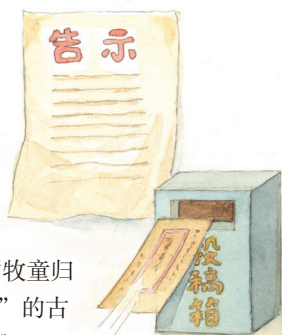 告示
投稿箱
牧童归
”的古